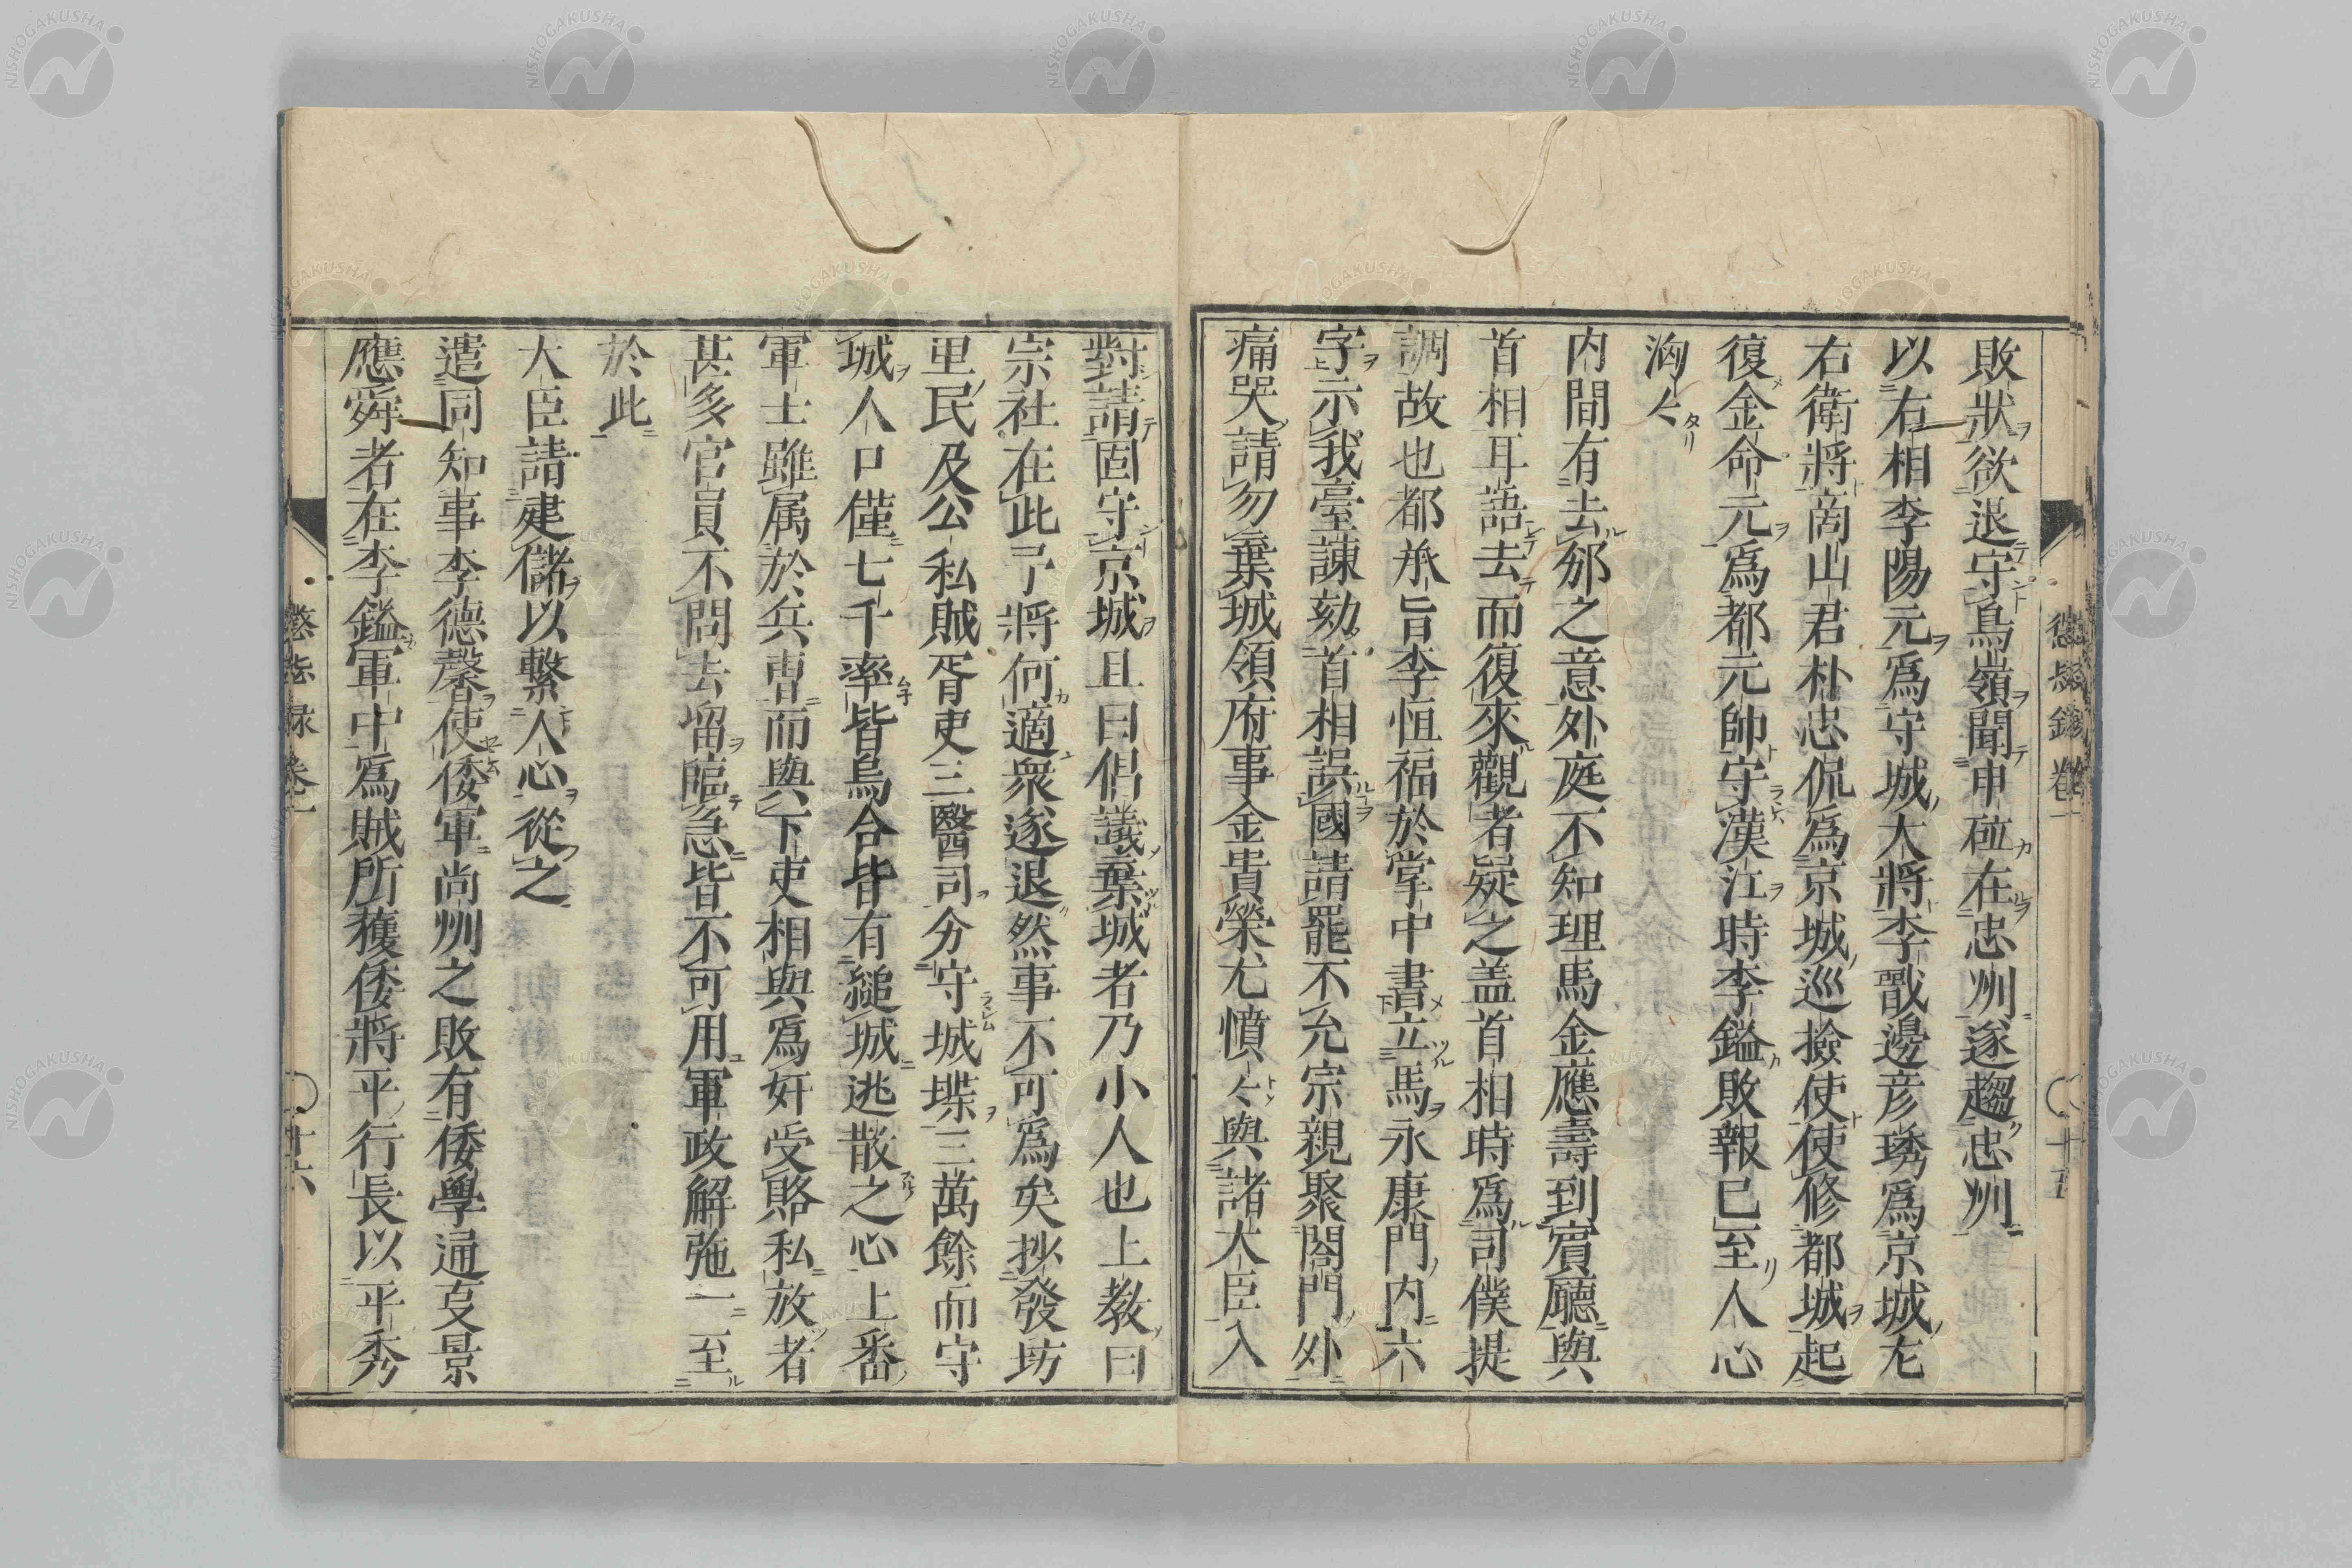 懲毖錄卷一
十五
敗狀欲退守鳥嶺聞申砬在忠州遂趨忠州
以右相李陽元爲守城大將李戩邊彥琇爲京城左
右衛將商山君朴忠侃爲京城巡撿使使修都城起
復金命元爲都元帥守漢江時李鎰敗報已至人心
洶々
内間有去邠之意外庭不知理馬金應壽到賓廳與
首相耳語去而復來觀者疑之盖首相時爲司僕提
調故也都承旨李恒福於掌中書立馬永康門内六
字示我臺諫劾首相誤國請罷不允宗親聚閤門外
痛哭請勿棄城領府事金貴榮尤憤々與諸大臣入
對請固守京城且曰倡議棄城者乃小人也上教曰
宗社在此予將何適衆遂退然事不可爲矣抄發坊
里民及公私賊胥吏三醫司分守城堞三萬餘而守
城人口僅七千率皆烏合皆有縋城逃散之心上番
軍士雖属於兵曹而與下吏相與爲奸受賂私放者
甚多官員不問去留臨急皆不可用軍政解弛一至
於此
大臣請建儲以繫人心從之
遣同知事李德馨使倭軍尚州之敗有倭學通支景
應舜者在李鎰軍中爲賊所獲倭將平行長以平秀
懲毖録卷一
十六